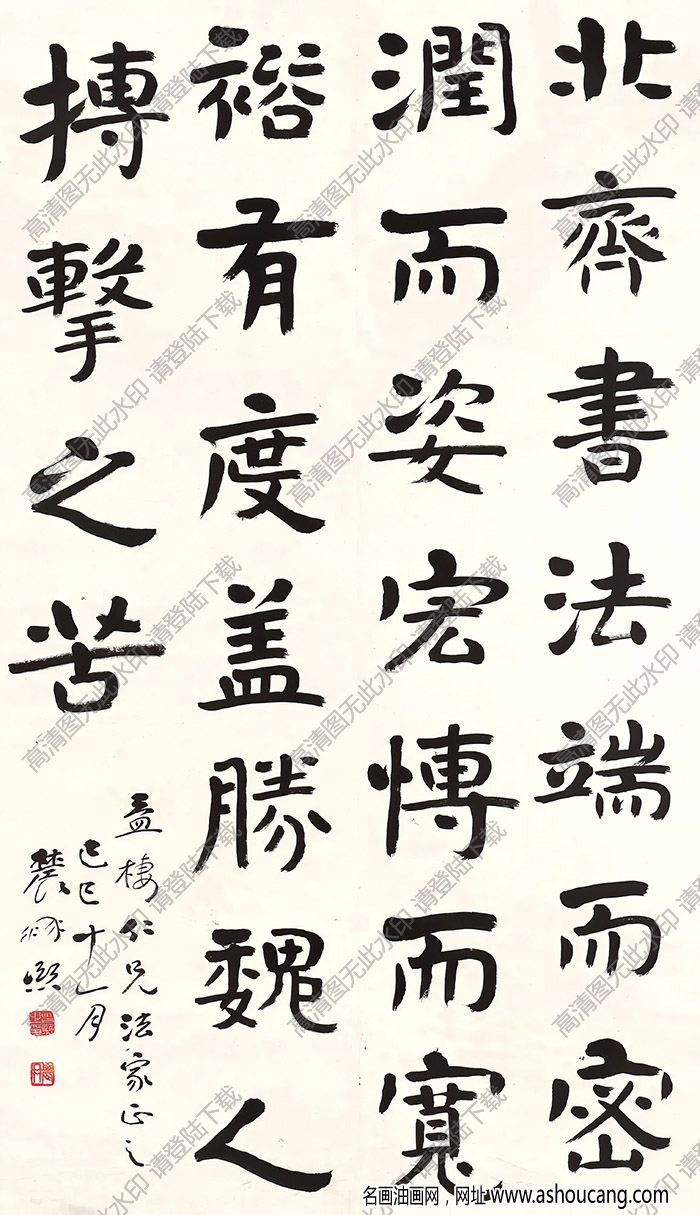 北齊書法端而密
潤而姿宏博而寬
裕有度盖勝魏人
搏擊之苦
益棲仁兄法家正之
己巳十一月
農髯熙
高清图无此水印 请登陆下载
名画油画网，网址www.ashoucang.com